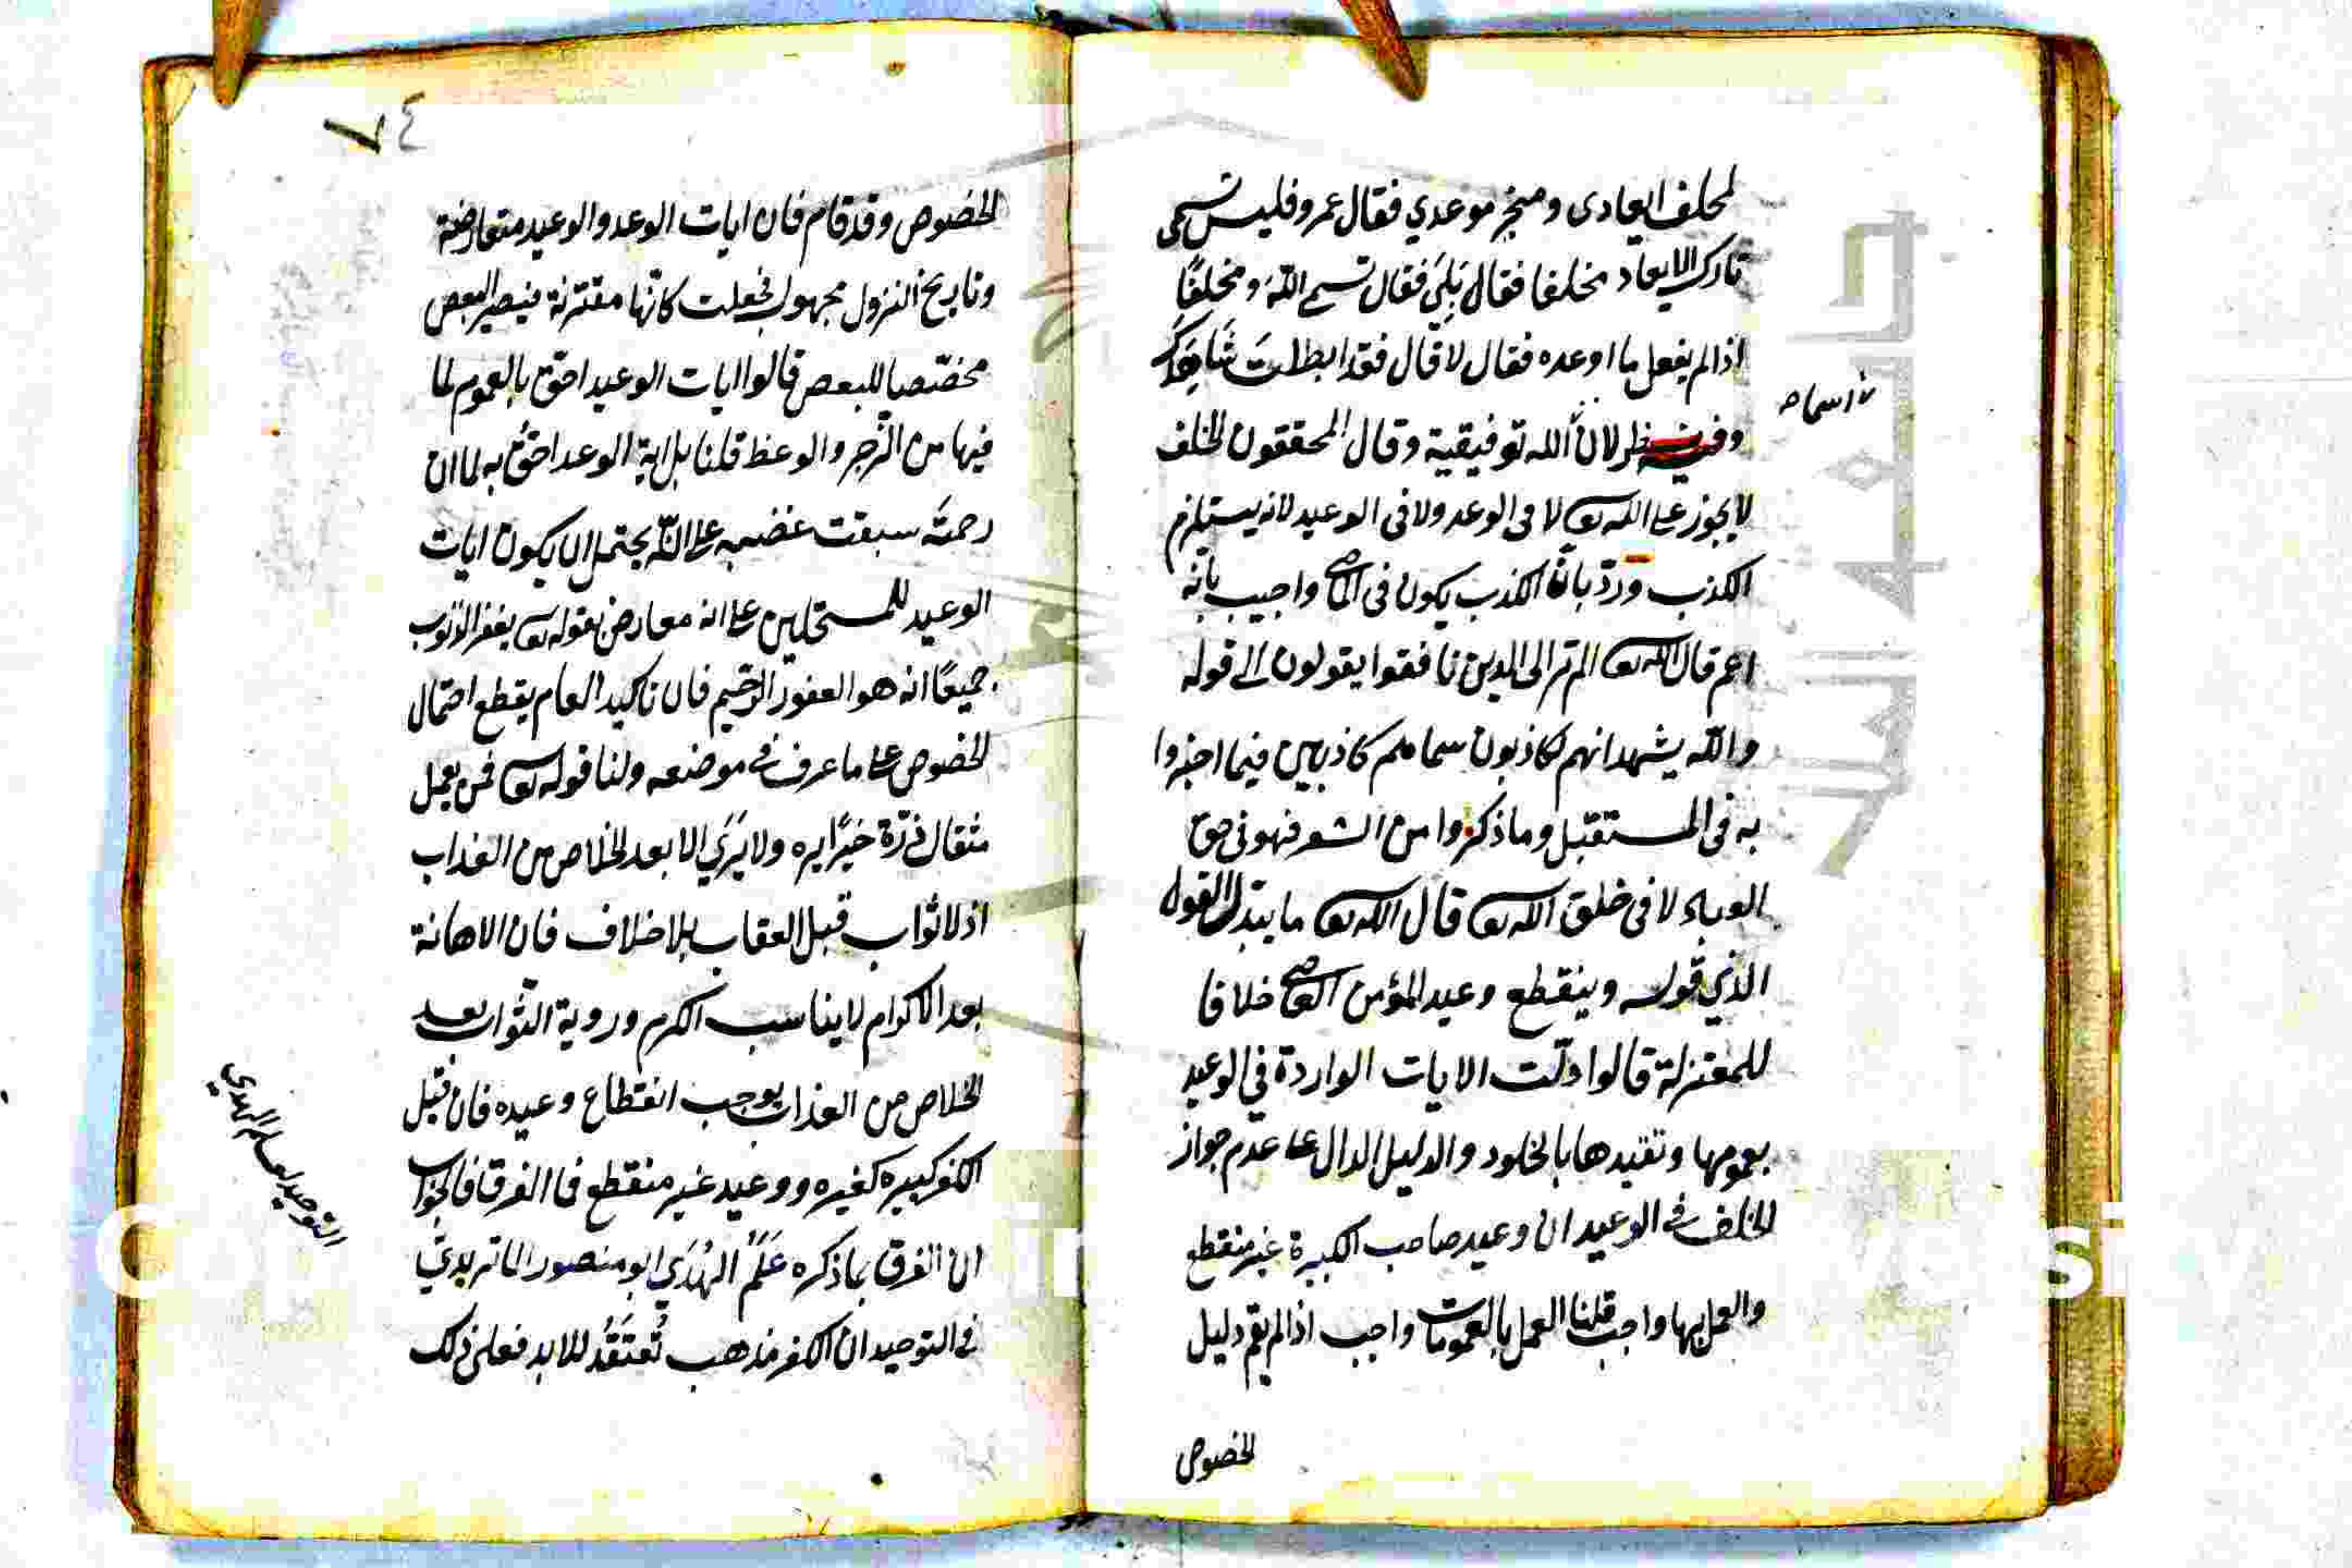 لمخلف ايعادى ومنجز موعدي فقال عمرو فليس تسمى
تارك الايعاد مخلفا فقال بَلَى فقال تسمى اللّه ومخلفًا
اذا لم يفعل ما اوعده فقال لا قال فقد ابطلت شاهدك
وفيه نظر لانّ اسماء الله توفيقية وقال المحققون الخلف
لا يجوز على الله تعا لا فى الوعد ولا فى الوعيد لانه يستلزم
الكذب وردّ بانّ الكذب يكون فى الماضى واجيب بانه
اعم قال الله تعا الم تر الى الذين نافقوا يقولون الى قوله
واللّه يشهد انهم لكاذبون سماهم كاذبين فيما اخبروا
به فى المستقبل وما ذكروا من الشعر فهو فى حق
العباد لا فى خلق الله تعا قال الله تعا ما يبدّل القول
الذي قوله وينقطع وعيد المؤمن العاصى خلافا
للمعتزلة قالوا دلّت الايات الواردة في الوعيد
بعمومها وتقيدها بالخلود والدليل الدال على عدم جواز
الخلف في الوعيد ان وعيد صاحب الكبيرة غير منقطع
والعمل بها واجب قلنا العمل بالعمومات واجب اذا لم يقم دليل
الخصوص
٧٤
الخصوص وقد قام فان ايات الوعد والوعيد متعارضة
وتاريخ النزول مجهول فجعلت كانّها مقترنة فيصير البعض
مخصّصا للبعض قالوا ايات الوعيد احقّ بالعموم لما
فيها من الزّجر والوعظ قلنا بل اية الوعد احقّ به لما ان
رحمتَه سبقت غضبه على انّه يحتمل ان يكون ايات
الوعيد للمستحلين على انه معارض بقوله تعا يغفر الذّنوب
جميعًا انه هو الغفور الرّحيم فان تاكيد العام يقطع احتمال
الخصوص على ما عرف في موضعه ولنا قوله تعا فمن يعمل
مثقال ذرّة خيرًا يره ولا يَرَي الا بعد الخلاص من العذاب
اذ لا ثواب قبل العقاب بلا خلاف فان الاهانة
بعد الاكرام لا يناسب الكرم وروية الثّواب بعد
الخلاص من العذاب يوجب انقطاع وعيده فان قيل
الكفر كبيره كغيره ووعيد غير منقطع فما الفرق فالجواب
ان الفرق بما ذكره عَلَمُ الهُدَي ابو منصور الماتريديّ
في التوحيد ان الكفر مذهب تُعتَقَدُ للابد فعلى ذلك
التوحيد لعلم الهدي